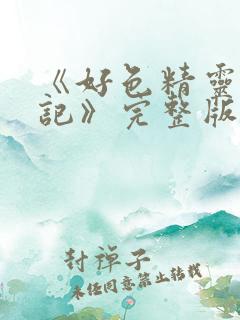 《好色精靈
記》完整版
封禪子
未经同意禁止转载